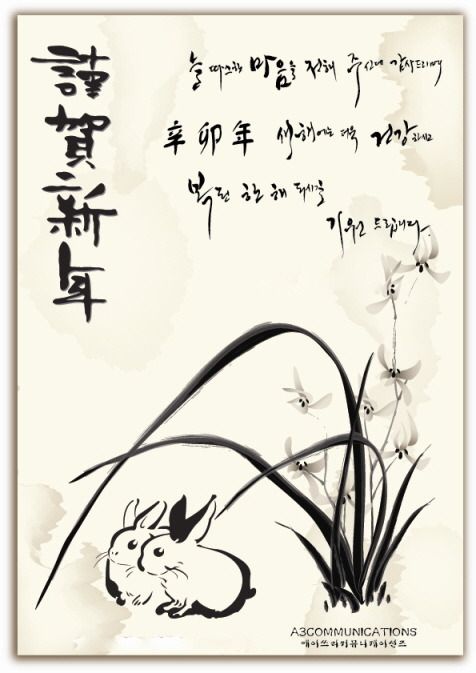 謹賀新年
늘 따스한 마음을 전해 주신데 감사드리며
辛卯年 새해에는 더욱 건강하시고
복된 한 해 되시길
기원 드립니다.
A3COMMUNICATIONS
에이쓰리커뮤니케이션즈